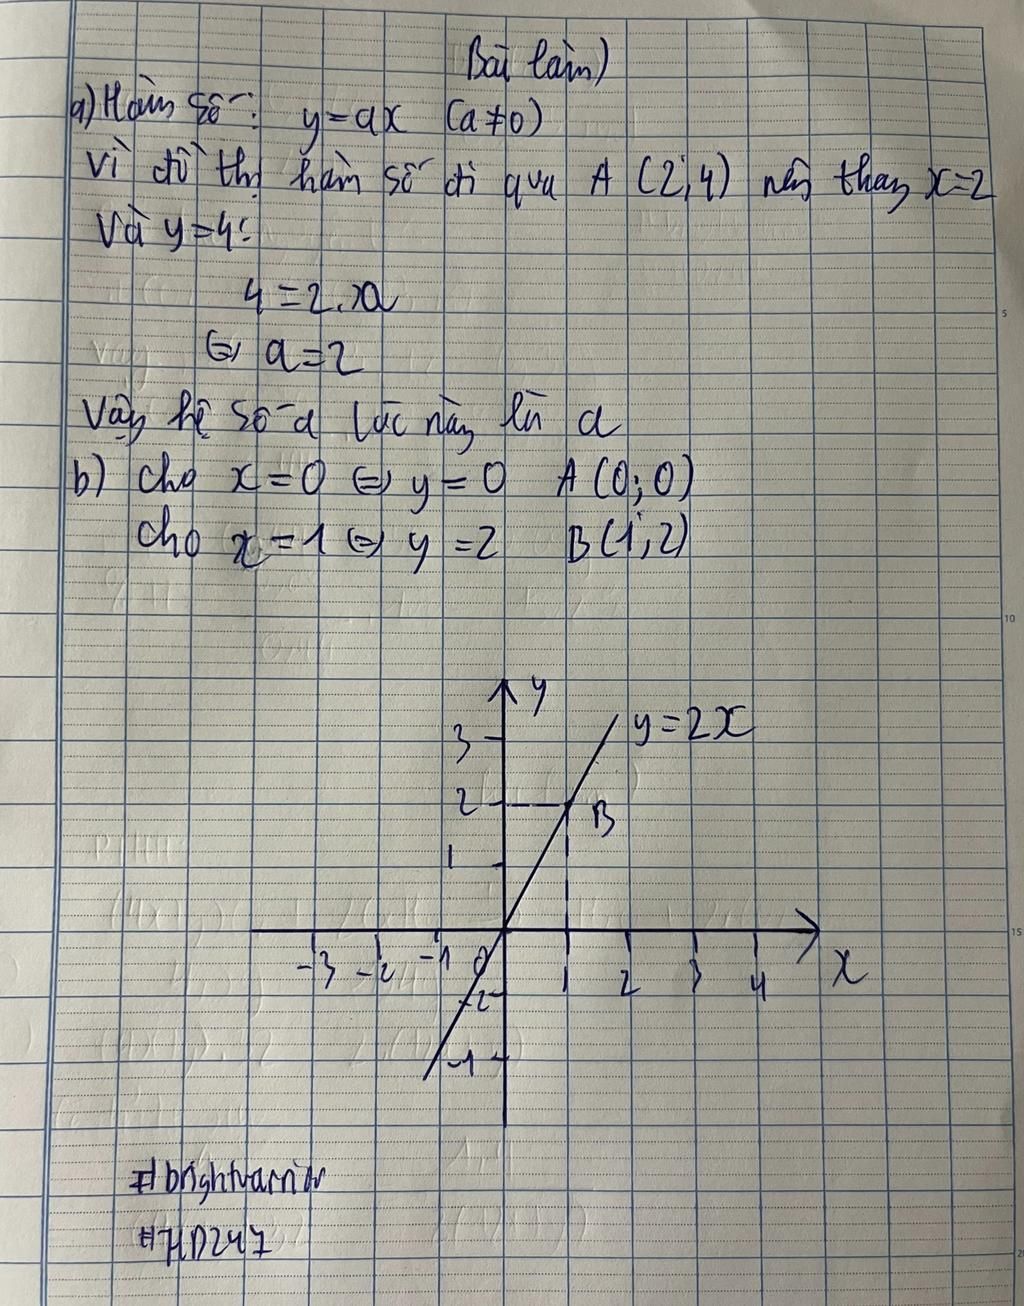 Bài làm)
a) Hàm số: y=ax (a≠0)
Vì đồ thị hàm số đi qua A (2;4) nên thay x=2
Và y=4:
4=2.a
⇔ a=2
Vậy hệ số a lúc này là a
b) cho x=0 ⇔ y=0 A(0;0)
cho x=1 ⇔ y=2 B(1;2)
y
3 y=2x
2 B
1
-3 -2 -1 0 1 2 3 4 x
-2
-1
#brightwarrior
#HD247
5
10
15